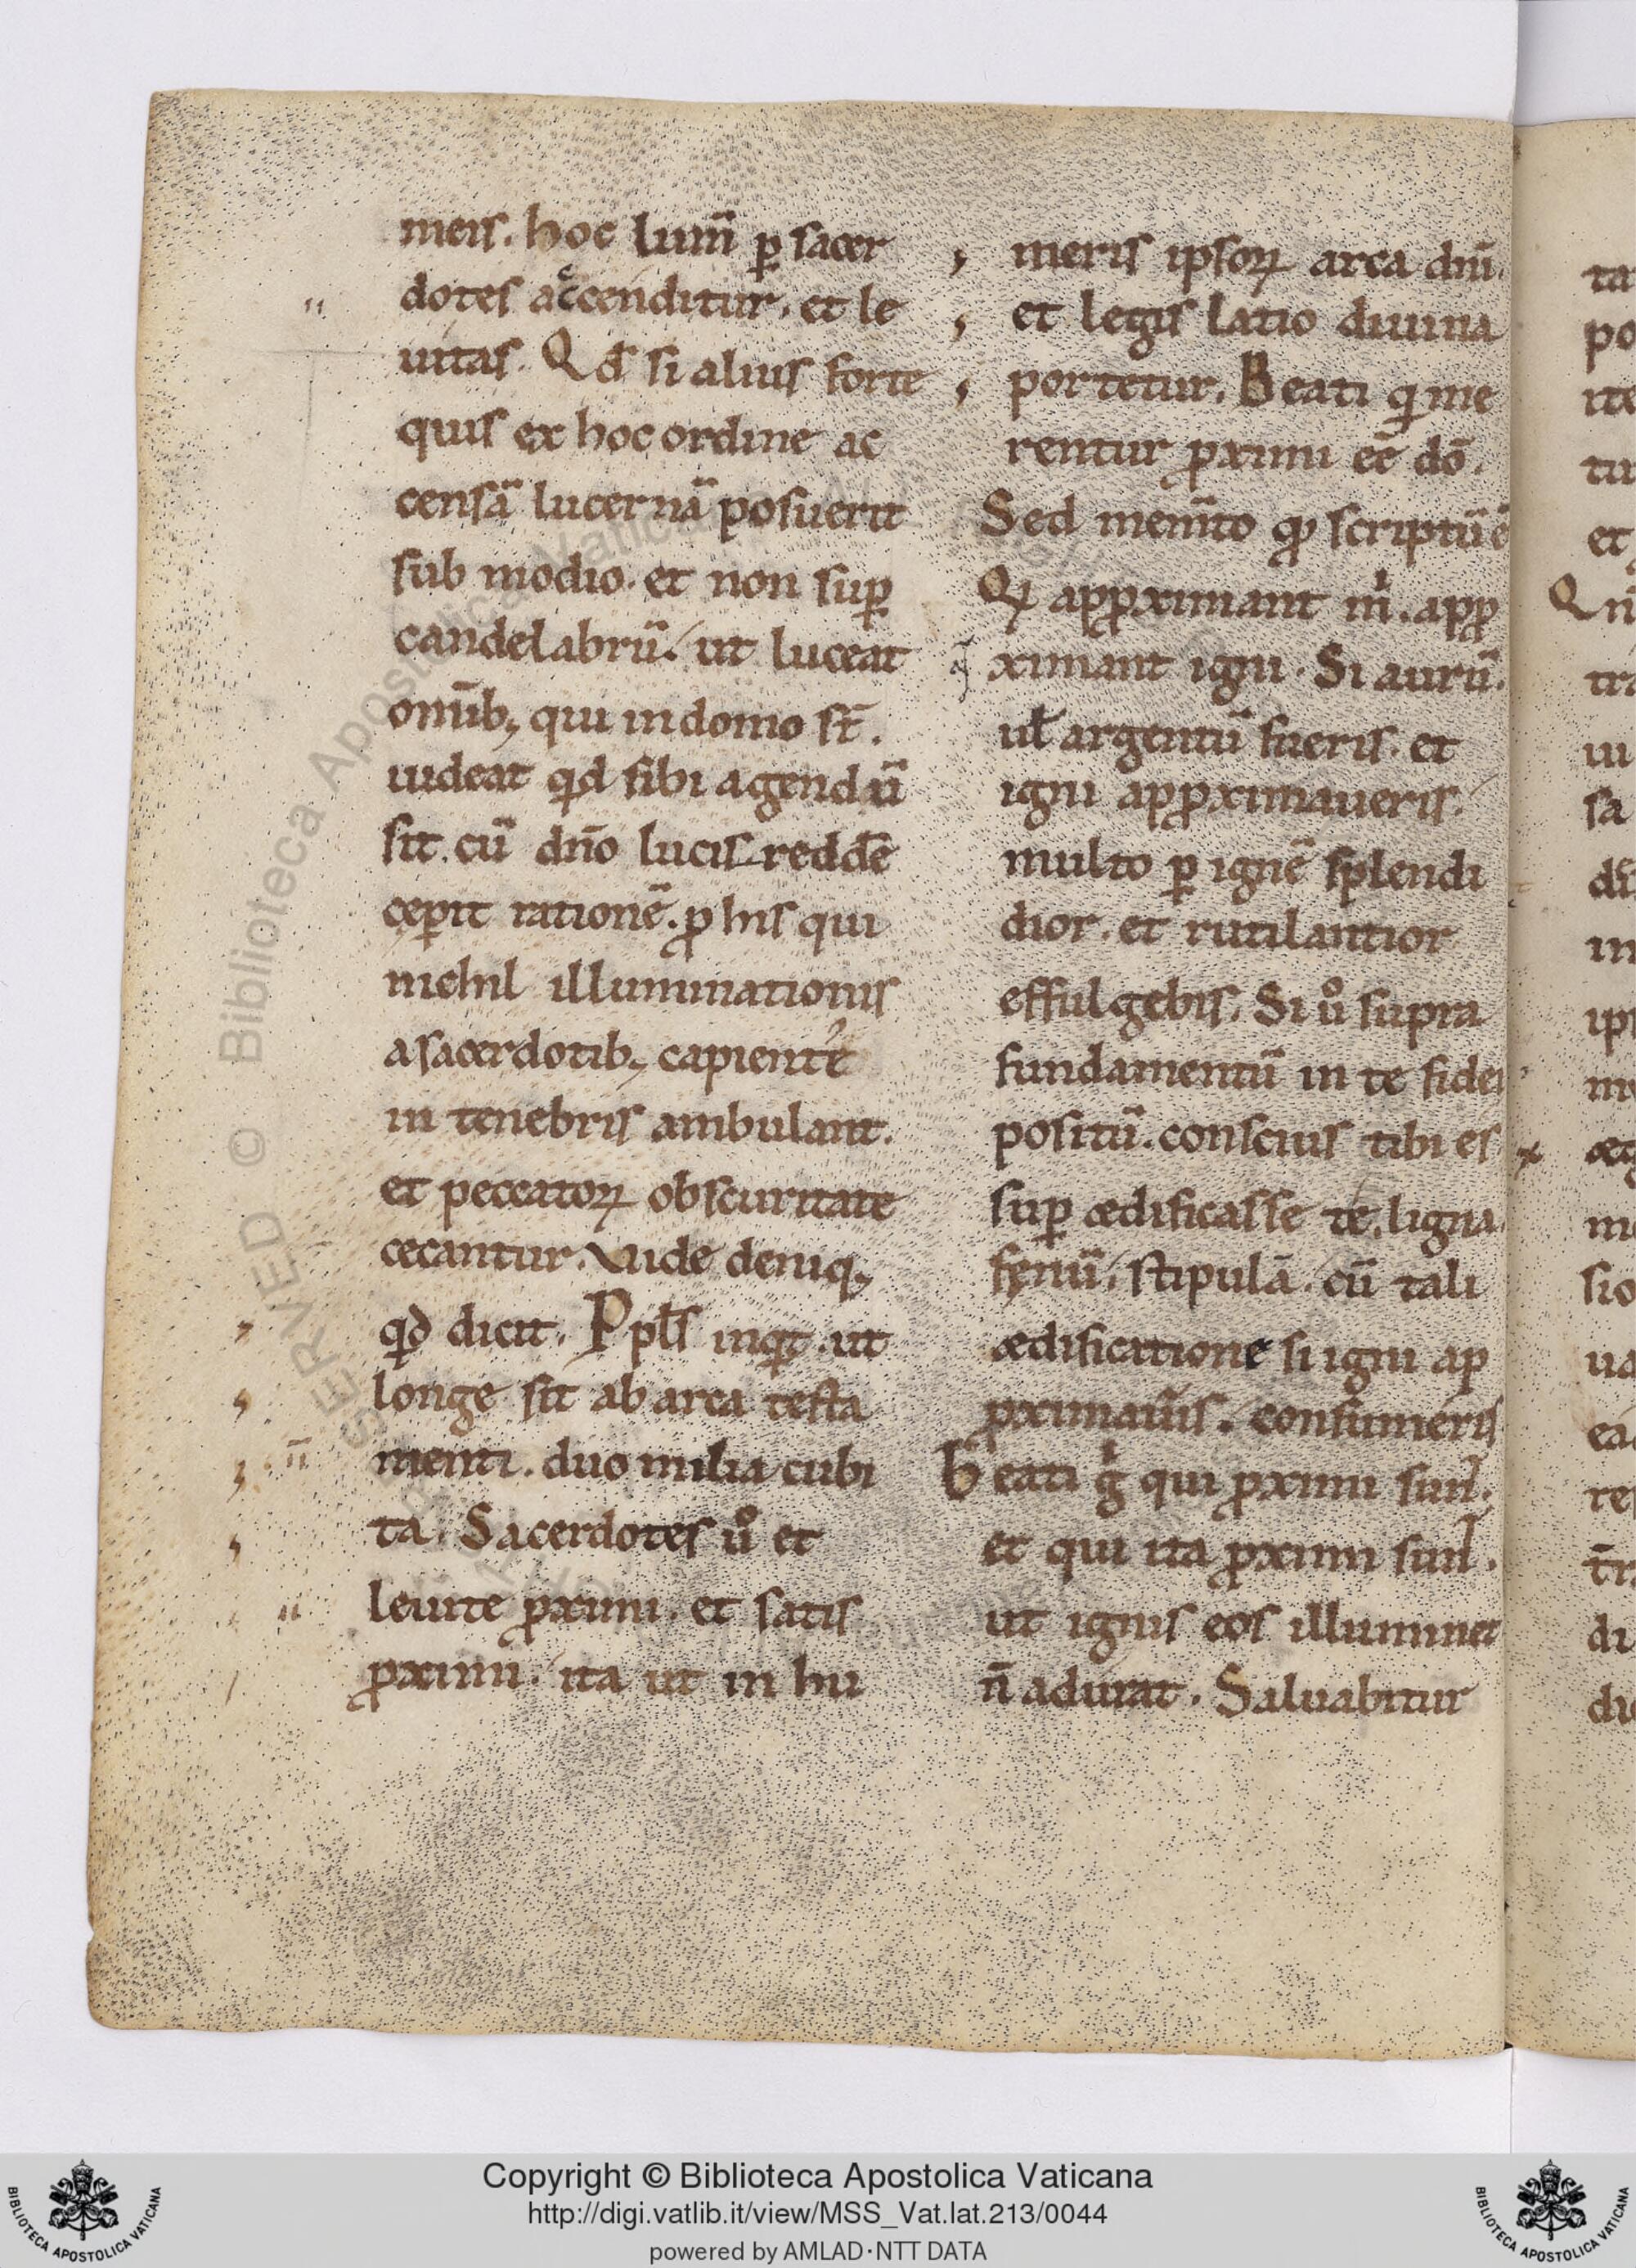 meis. hoc lum̄ ꝑ sacer
dotes accenditur. et le
uitas. Qd̄ si alius forte
quis ex hoc ordine ac
censā lucernā posuerit
sub modio. et non suꝑ
candelabrū. ut luceat
omīb; qui in domo st̄.
uideat qd sibi agendū
sit. cū dn̄o lucis reddē
ceperit rationē. ꝓ his qui
nichil illuminationis
a sacerdotib; capientes
in tenebris ambulant.
et peccatoꝝ obscuritate
cecantur. Vide deniq;
qd dicit. Ppl̄s inqt. ut
longe sit ab arca testa
menti. duo milia cubi
ta. Sacerdotes uͦ et
leuite ꝓximi. et satis
ꝓximi. ita ut in hu
meris ipsoꝝ arca dn̄i.
et legis latio diuina
portetur. Beati qi me
rentur ꝓximi eē dō.
Sed mem̄to qd scriptū ē
Qi apꝓximant m̍. apꝓ
ximant igni. Si aurū.
ul̄ argentū fueris. et
igni apꝓximaueris.
multo ꝑ ignē splendi
dior. et rutilantior
effulgebis. Si uͦ supra
fundamentū in te fidei
positū. conscius tibi es
suꝑ ædificasse te. ligna.
fenū. stipulā. cū tali
ædificatione si igni ap
ꝓximaūis. consumeris
Beati g̍ qui ꝓximi sunt.
et qui ita ꝓximi sunt.
ut ignis eos illuminet
n̄ adurat. Saluabitur
Copyright © Biblioteca Apostolica Vaticana
http://digi.vatlib.it/view/MSS_Vat.lat.213/0044
powered by AMLAD·NTT DATA
BIBLIOTECA APOSTOLICA VATICANA
BIBLIOTECA APOSTOLICA VATICANA